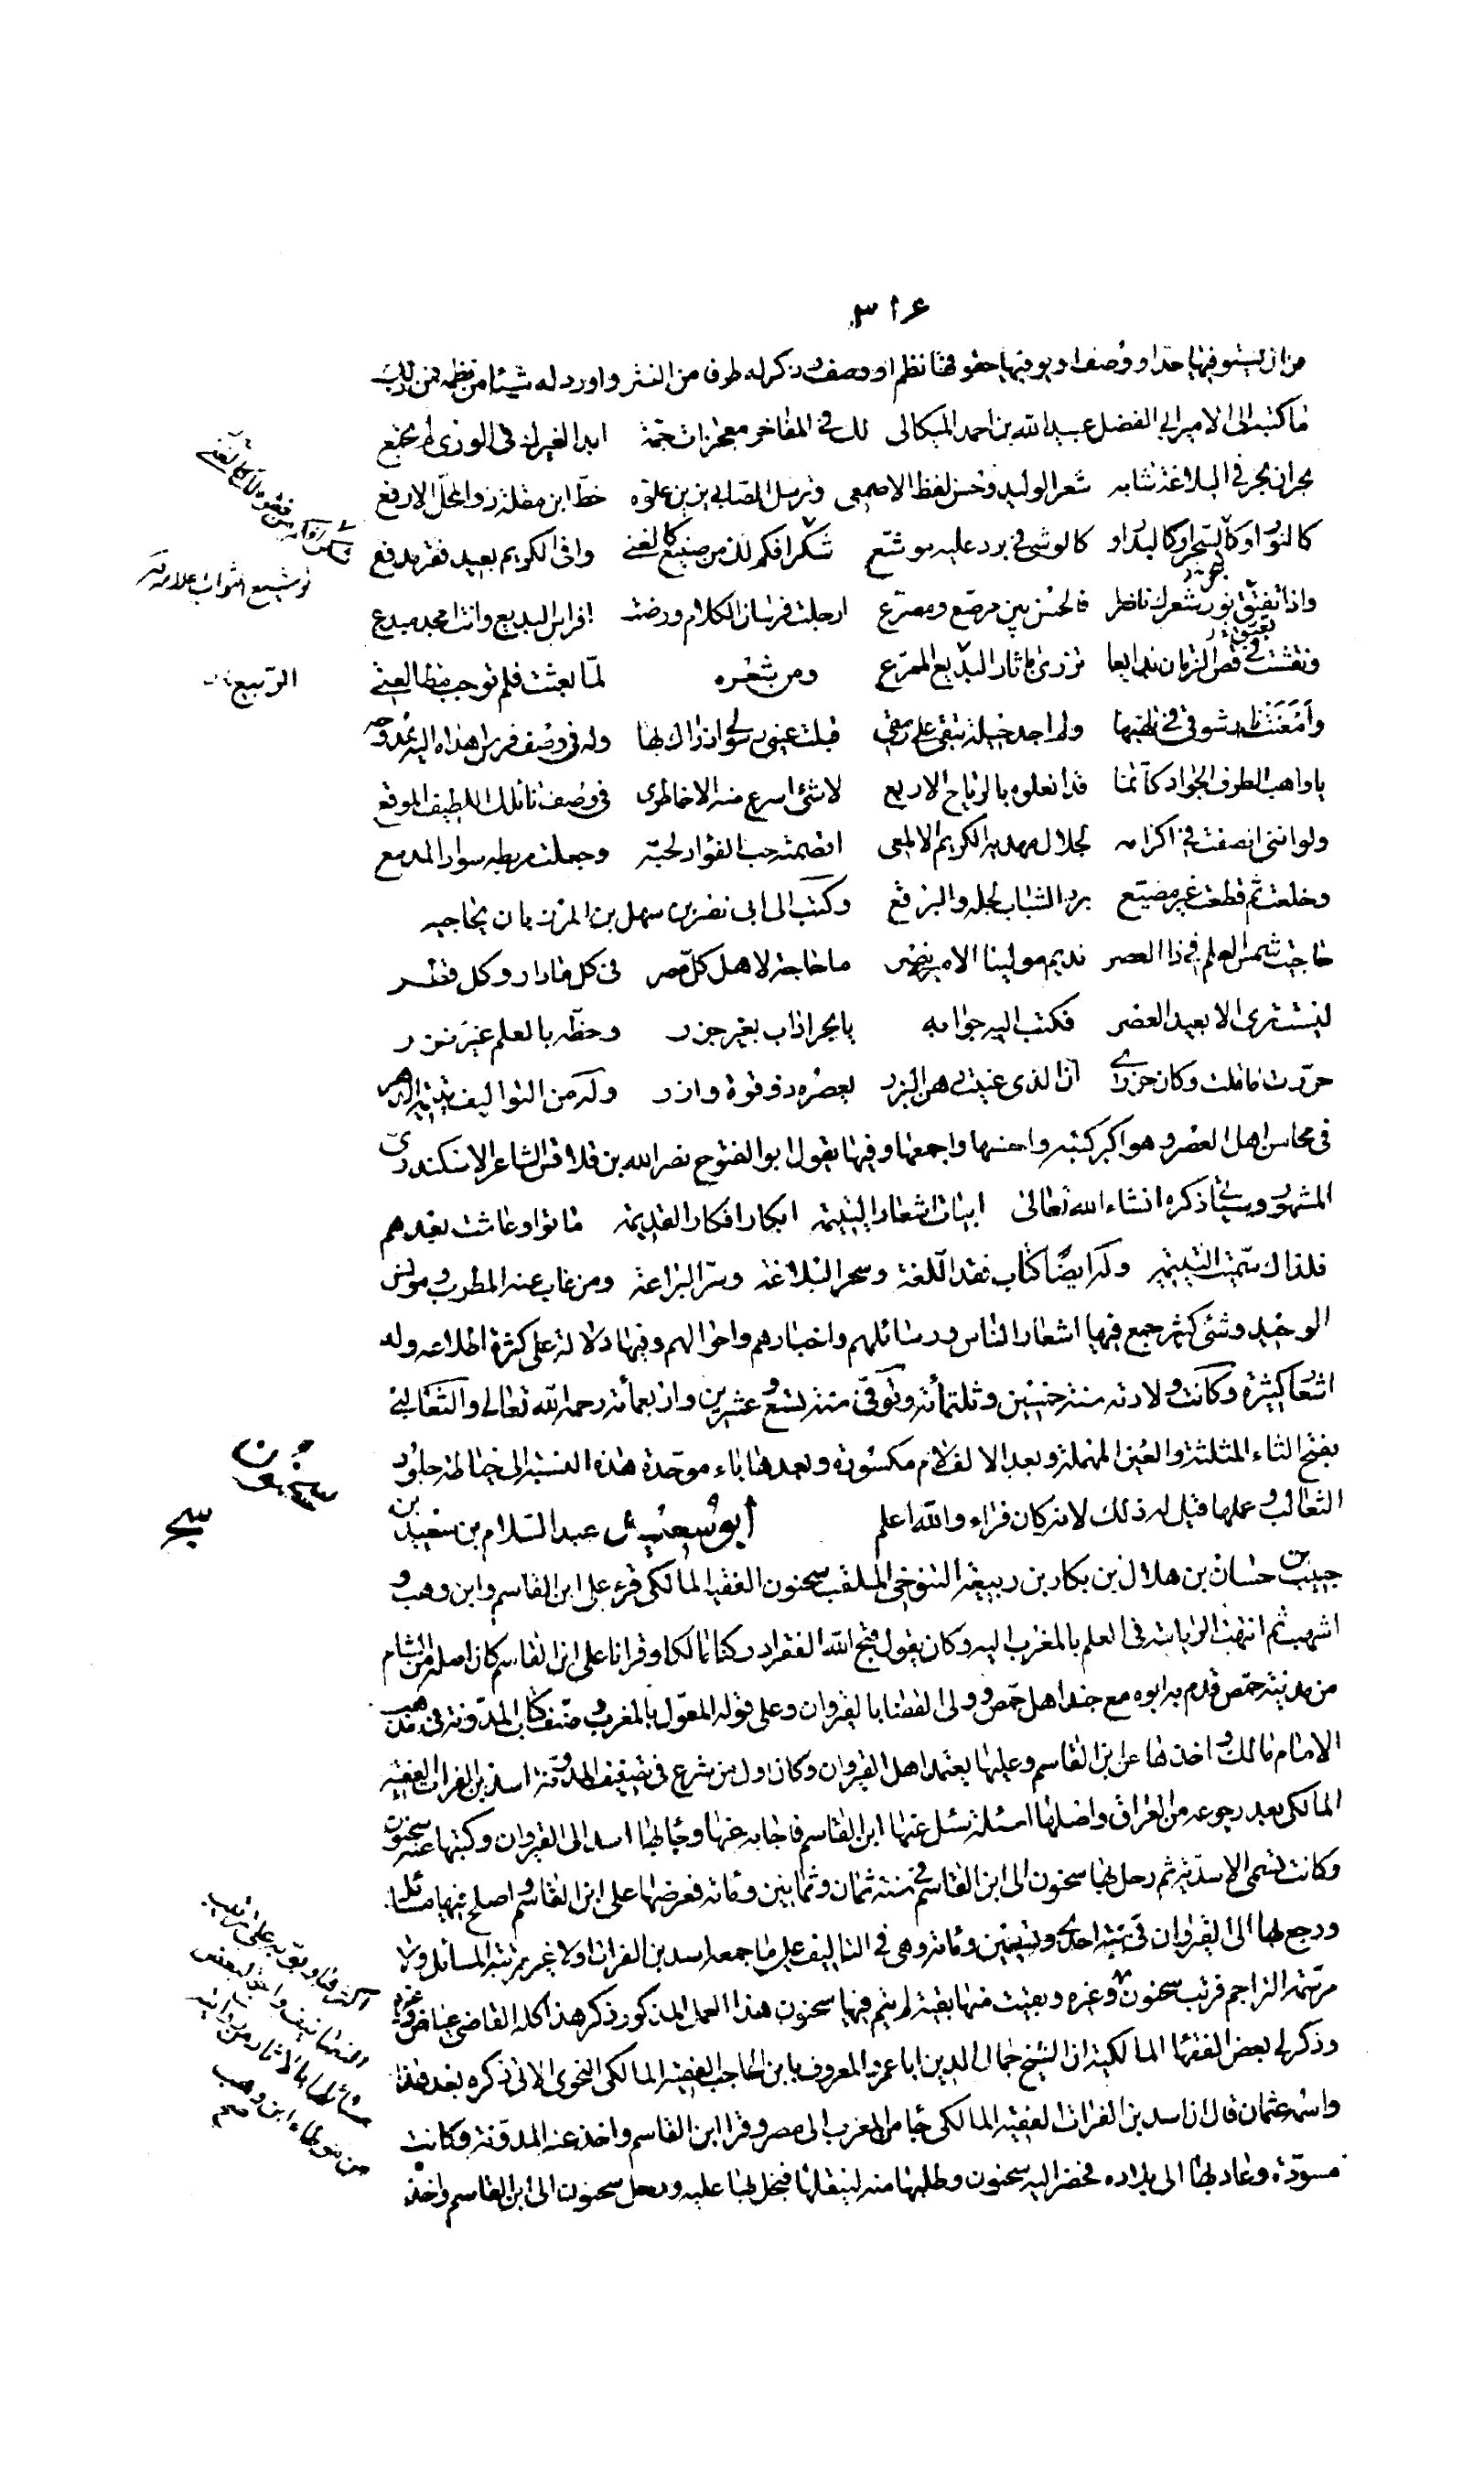 ٣١۶
من ان يستوفيها حد او وصف او يوفيها حقوقها نظم او وصف وذكر له طرفا من النثر واورد له شيئا من نظمه فمن ذلك
ما كتبه الى الامير ابى الفضل عبيد الله بن احمد الميكالى لك فى المفاخر معجزات جمة ابدا لغيرك فى الورى لم تجمع
بحران بحر فى البلاغة شابه شعر الوليد وحسن لفظ الاصمعى وترسل الصابى يزين علوه خط ابن مقلة ذو المحل الارفع
كالنور او كالسحر او كالبدر او كالوشى فى برد عليه موشع شكرا فكم لك من صنيع كالغنى وافى الكريم بعيد فقر مدقع
واذا تفتق نور شعرك ناظر فالحسن بين مرصع ومصرع ارجلت فرسان الكلام ورضت افراس البديع وانت امجد مبدع
ونقشت فى فص الزمان بدايعا تزرى باثار البديع الممرع ومن شعره لما بعثت فلم توجب مطالعتى
وامعنت نار شوقى فى تلهبها ولم اجد حيلة تبقى على رمقى قبلت عينى رسولى اذ راك بها وله فى وصف فرس اهداه اليه ممدوحه
يا واهب الطرف الجواد كانما قد انعلوه بالرياح الاربع لا شئ اسرع منه الا خاطرى فى وصف نائلك اللطيف الموقع
ولو اننى انصفت فى اكرامه لجلال مهديه الكريم الالمعى اقضمته حب الفؤاد لحبه وجعلت مربطه سواد المدمع
وخلعت ثم قطعت غير مضيع برد الشباب لجله والبرقع وكتب الى ابى نصر بن سهل بن المرزبان يحاجيه
حاجيت شمس العلم فى ذا العصر نديم مولينا الامير نصر ما حاجة لاهل كل مصر فى كل ما دار وكل قصر
ليست ترى الا بعيد العصر فكتب اليه جوابه يا بحر اداب بغير جزر وحظه بالعلم غير نزر
حزرت ما قلت وكان حزرى ان الذى عنيت دهن البزر يعصره ذو قوة وازر وله من التواليف يتيمة الدهر
فى محاسن اهل العصر وهو اكبر كتبه واحسنها واجمعها وفيها يقول ابو الفتوح نصر الله بن قلاقس الشاعر الاسكندرى
المشهور وسيأتى ذكره انشاء الله تعالى ابيات اشعار اليتيمة ابكار افكار القديمة ماتوا وعاشت بعدهم
فلذاك سميت اليتيمة وله ايضا كتاب فقه اللغة وسحر البلاغة وسر البراعة ومن غاب عنه المطرب ومونس
الوحيد وشئ كثير جمع فيها اشعار الناس ورسائلهم واخبارهم واحوالهم وفيها دلالة على كثرة اطلاعه وله
اشعار كثيرة وكانت ولادته سنة خمسين وثلثمأئة وتوفى سنة تسع وعشرين واربعمأئة رحمه الله تعالى والثعالبى
بفتح الثاء المثلثة والعين المهملة وبعد الالف لام مكسورة وبعدها باء موحدة هذه النسبة الى خياطة جلود
الثعالب وعملها قيل له ذلك لانه كان فراء والله اعلم ابو سعيد عبد السلام بن سعيد بن
حبيب بن حسان بن هلال بن بكار بن ربيعة التنوخى الملقب سحنون الفقيه المالكى قرء على ابن القاسم وابن وهب و
اشهب ثم انتهت الرياسة فى العلم بالمغرب اليه وكان يقول قبح الله الفقر ادركنا مالكا وقرانا على ابن القاسم كان اصله من الشام
من مدينة حمص قدم به ابوه مع جند اهل حمص وولى القضا بالقيروان وعلى قوله المعول بالمغرب وصنف كتاب المدونة فى مذهب
الامام مالك واخذها عن ابن القاسم وعليها يعتمد اهل القيروان وكان اول من شرع فى تصنيف المدونة اسد بن الفرات الفقيه
المالكى بعد رجوعه من العراق واصلها اسئلة سئل عنها ابن القاسم فاجابه عنها وجا بها اسد الى القيروان وكتبها عنه سحنون
وكانت تسمى الاسدية ثم رحل بها سحنون الى ابن القاسم فى سنة ثمان وثمانين ومائة فعرضها على ابن القاسم واصلح فيها مسائل
ورجع بها الى القيروان فى سنة احدى وتسعين ومائة وهى فى التاليف على ما جمعه اسد بن الفرات اولا غير مرتبة المسائل ولا
مرتبة التراجم فرتب سحنون وغيره وبقيت منها بقية لم يتم فيها سحنون هذا العمل المذكور ذكر هذا كله القاضى عياض وغيره
وذكر لى بعض الفقها المالكية ان الشيخ جمال الدين ابا عمرو المعروف بابن الحاجب الفقيه المالكى النحوى الاتى ذكره بعد هذا
واسمه عثمان قال ان اسد بن الفرات الفقيه المالكى جا من المغرب الى مصر وقرا ابن القاسم واخذ عنه المدونة وكانت
مسودة وعاد بها الى بلاده فحضر اليه سحنون وطلبها منه لينقلها فبخل بها عليه ورحل سحنون الى ابن القاسم واخذ
توشيع الثواب علامته
الربيع
سحنون
اكثرها وبوبه على ترتيب
التصانيف واحتج لبعض
مسائلها بالاثار من روايته
من موطاء ابن وهب
صح